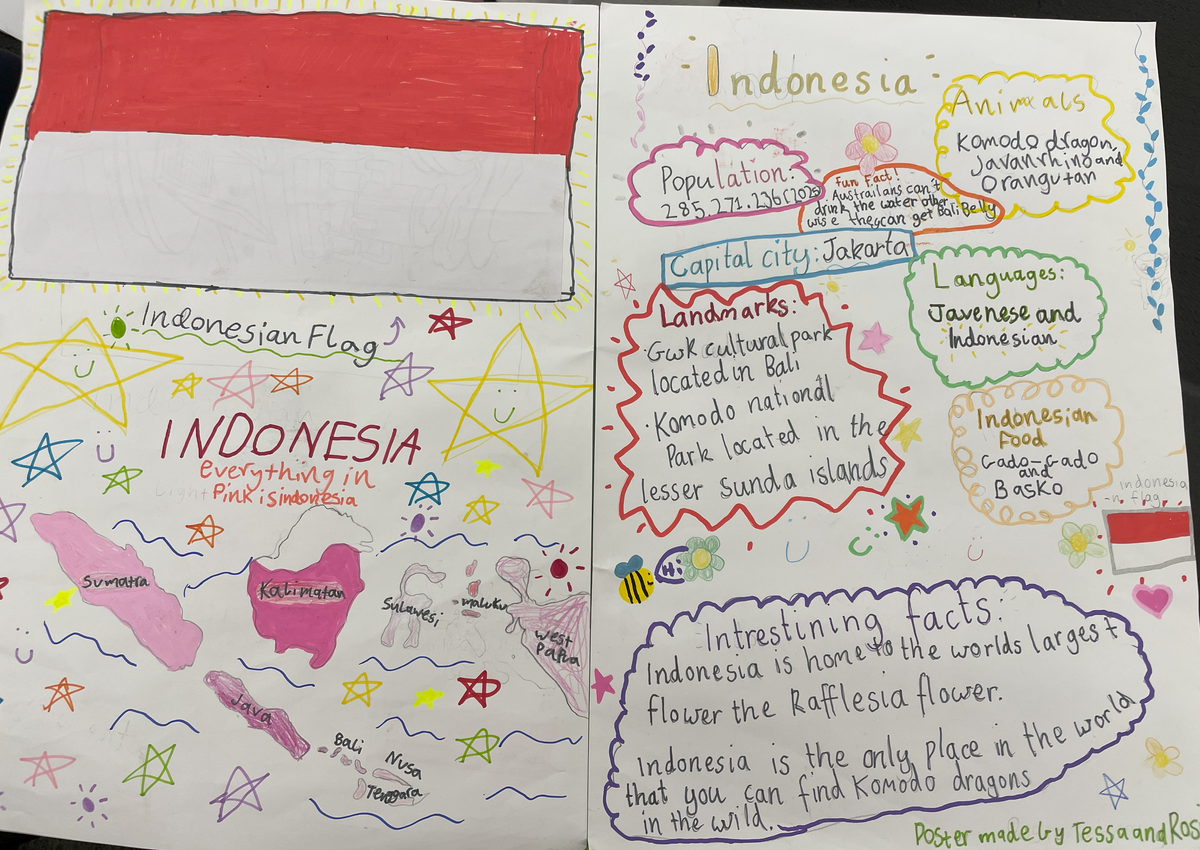 Indonesian Flag
INDONESIA
everything in
Pink is indonesia
Sumatra
Kalimatan
Sulawesi
maluku
West
Papua
Java
Bali
Nusa
Tenggara
Indonesia
Animals
Komodo dragon,
Javan rhino and
Orangutan
Population:
285.271.236 (2025)
fun Fact!
Austrailans can't
drink the water other
wise they can get Bali Belly
Capital city: Jakarta
Languages:
Javenese and
Indonesian
Landmarks:
·Gwk cultural park
located in Bali
·Komodo national
Park located in the
lesser sunda islands
Indonesian
Food
Gado-Gado
and
Basko
indonesia
-n flag
Intrestining facts:
Indonesia is home to the worlds largest
flower the Rafflesia flower.
Indonesia is the only place in the world
that you can find Komodo dragons
in the wild.
Poster made by Tessa and Ros